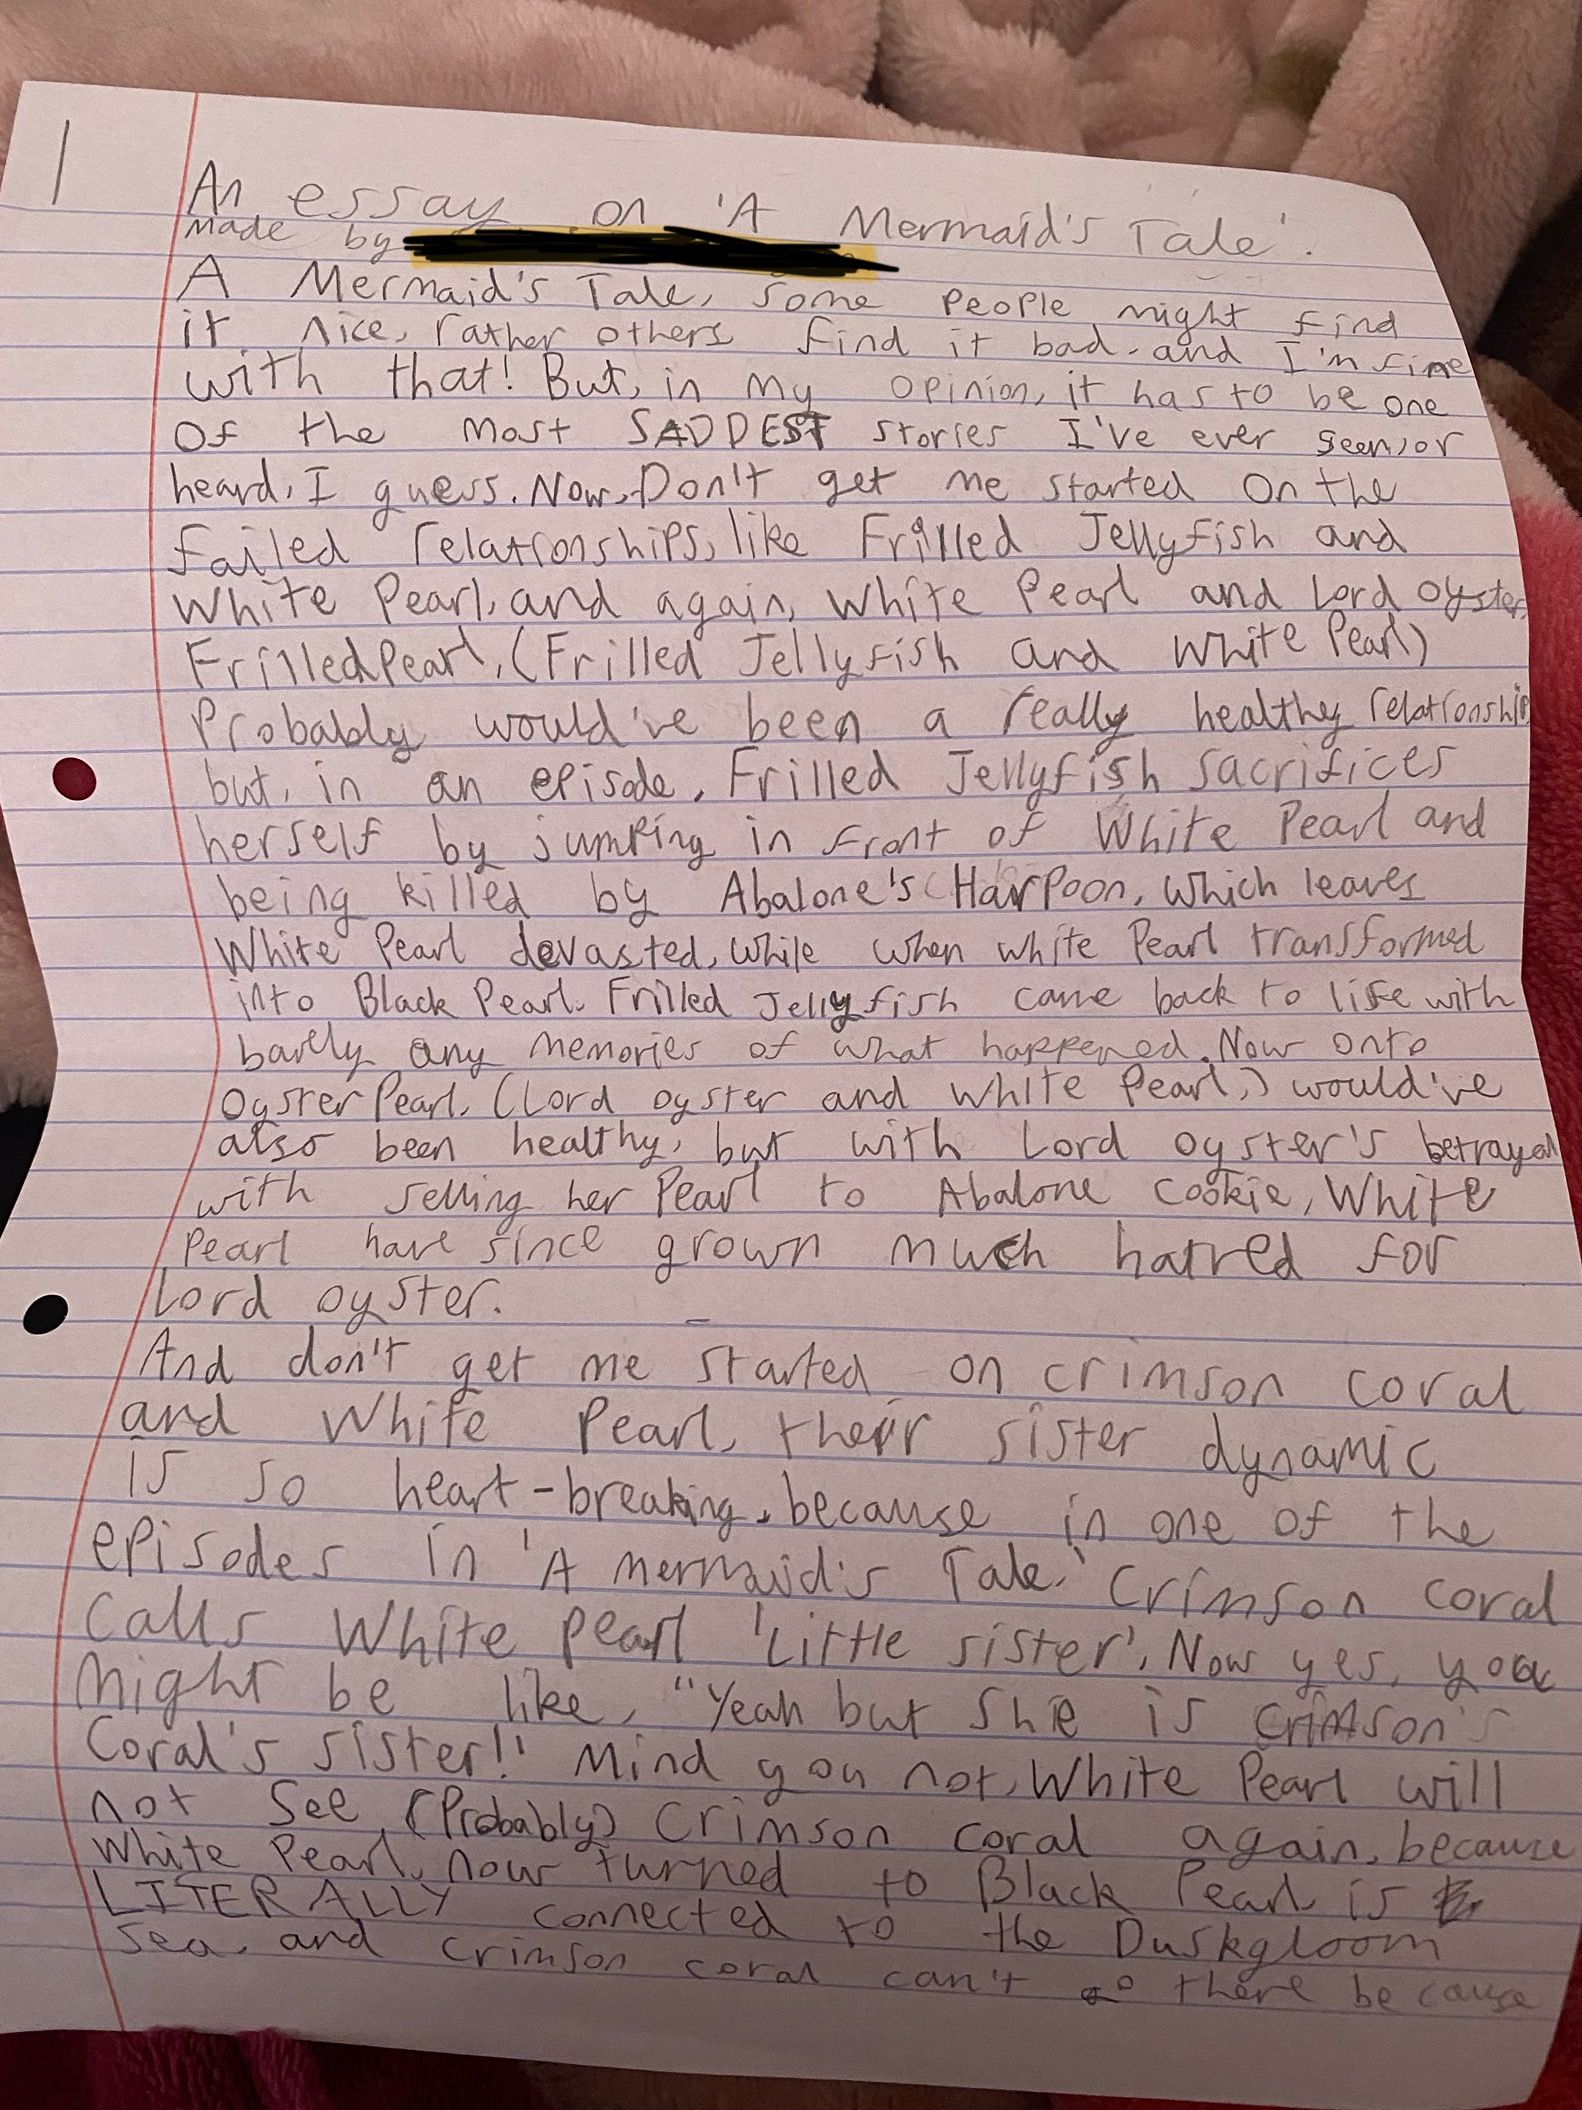 1
An essay on 'A Mermaid's Tale'.
Made by
A Mermaid's Tale, some people might find
it nice, rather others find it bad, and I'm fine
with that! But, in my opinion, it has to be one
of the most SADDEST stories I've ever seen, or
heard, I guess. Now, Don't get me started on the
failed relationships, like Frilled Jellyfish and
White Pearl, and again, White Pearl and Lord Oyster,
FrilledPearl, (Frilled Jellyfish and White Pearl)
Probably would've been a really healthy relationship
but, in an episode, Frilled Jellyfish sacrifices
herself by jumping in front of White Pearl and
being killed by Abalone's Harpoon, which leaves
White Pearl devasted, while when white Pearl transformed
into Black Pearl. Frilled Jellyfish came back to life with
barely any memories of what happened. Now onto
OysterPearl, (Lord oyster and White Pearl,) would've
also been healthy, but with Lord oyster's betrayal
with selling her Pearl to Abalone Cookie, White
Pearl have since grown much hatred for
Lord oyster.
And don't get me started on crimson coral
and White Pearl, their sister dynamic
is so heart-breaking, because in one of the
episodes in 'A mermaid's Tale,' Crimson coral
calls White pearl 'Little sister', Now yes, you
might be like, "Yeah but she is crimson's
Coral's sister!" Mind you not, White Pearl will
not see (Probably) Crimson coral again, because
White Pearl, now turned to Black Pearl is
LITERALLY connected to the Duskgloom
sea, and crimson coral can't go there because